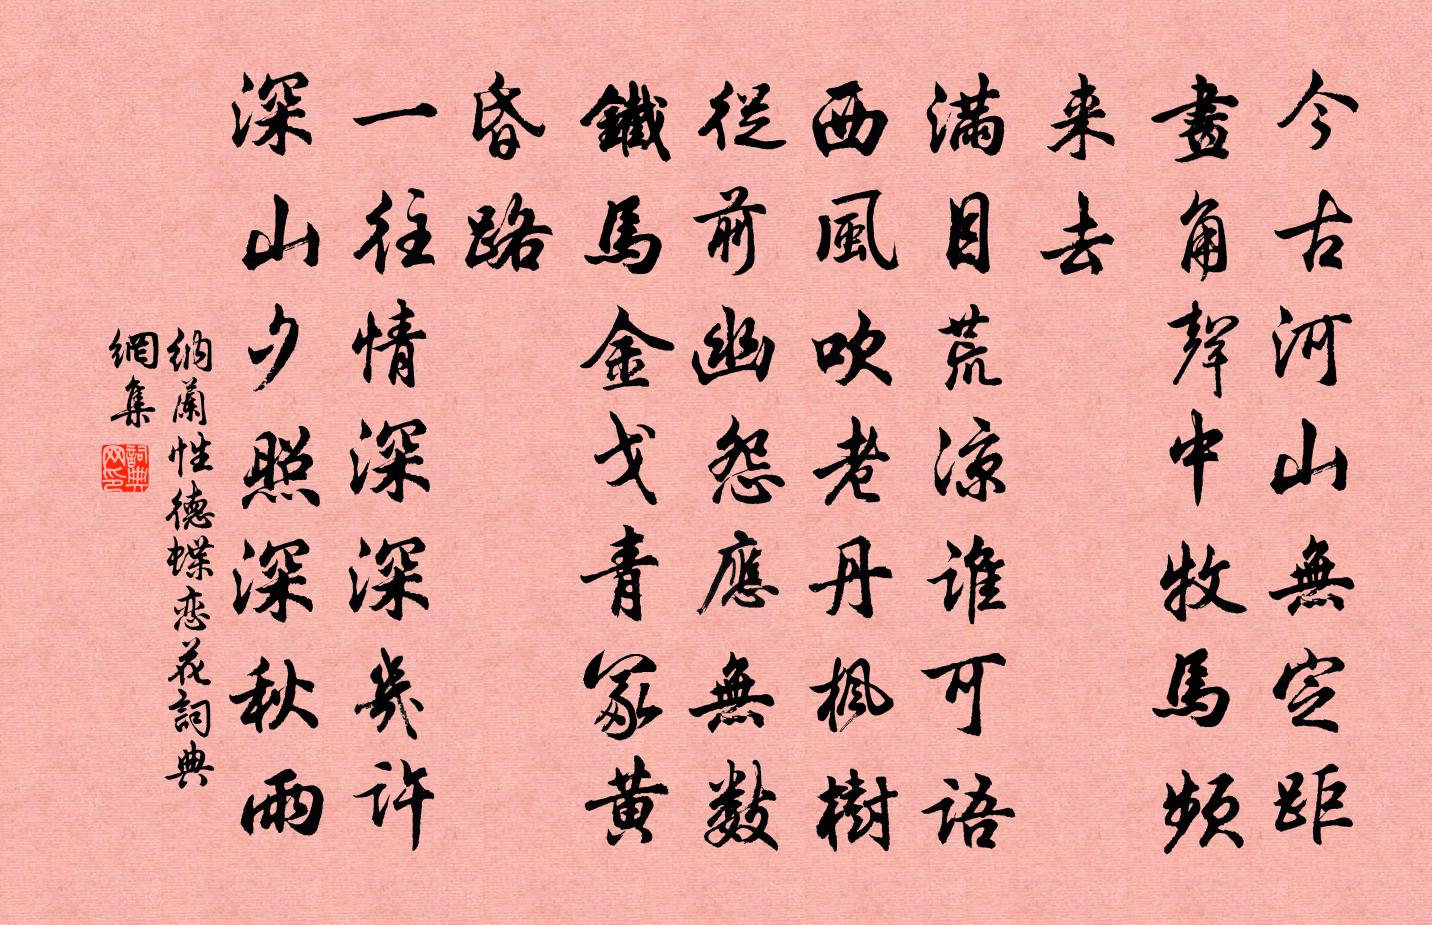 今古河山無定距
畫角聲中牧馬頻
来去
滿目荒涼誰可語
西風吹老丹楓樹
從前幽怨應無數
鐵馬金戈青冢黃
昏路
一往情深深幾許
深山夕照深秋雨
納蘭性德蝶恋花詞典
網集
詞典
网印